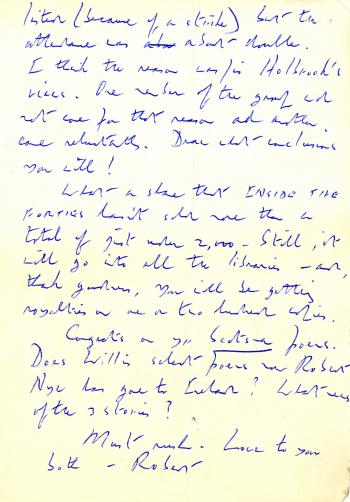 listen (because of a strike) but the
attendance was also about double.
I think the reason was/is Holbrook's
views. One member of the group did
not come for that reason and another
came reluctantly. Draw what conclusions
you will!
What a shame that INSIDE THE
FORTIES hasn't sold more than a
total of just under 2,000 - Still, it
will go into all the libraries - and,
thank goodness, you will be getting
royalties on one or two hundred copies.
Congrats on yr Scotsman poems.
Does Willis select poems now Robert
Nye has gone to Ireland? What news
of the 3 stories?
Must rush. Love to you
both - Robert